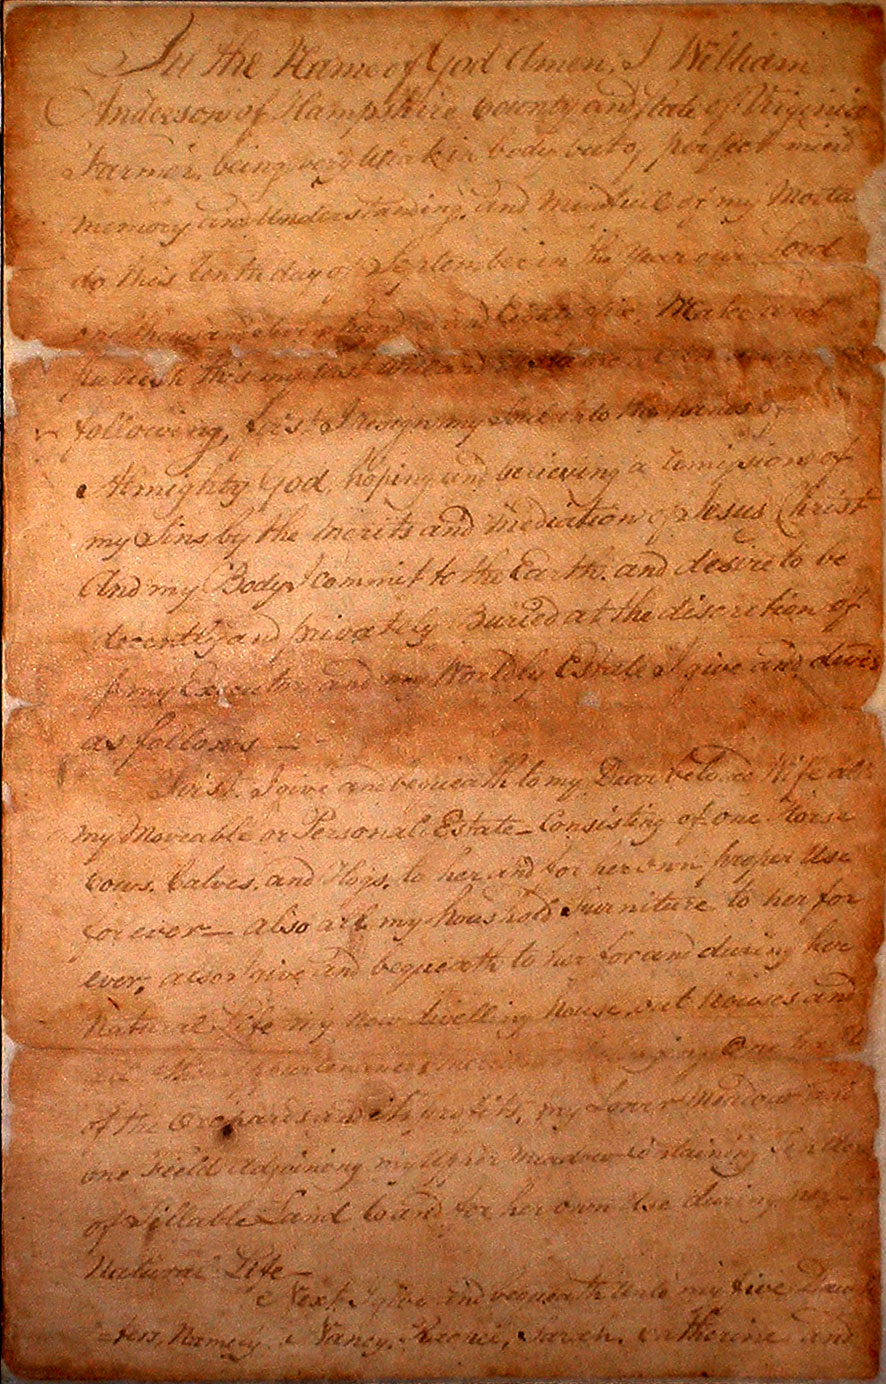 In the Name of God Amen, I William
Anderson of Hampshire County and State of Virginia
Farmer, being very Weak in body but of perfect mind
memory and Understanding, and mindful of my Morta
do this Tenth day of September in the Year our Lord
one thousand seven hundred and Make and
Publish this my last Will and
following, first I resign my Soul into the hands of
Almighty God, hoping and believing a remission of
my Sins by the merits and mediation of Jesus Christ
And my Body I commit to the Earth. and desire to be
decently and privately Buried at the discretion of
my Executor, and my Worldly Estate I give and devis
as follows —
First. I give and bequeath to my Dear belov'd Wife all
my Moveable or Personal Estate — Consisting of one Horse
Cows. Calves. and Hogs. to her and for her own proper Use
for ever — also all my houshold Furniture to her for
ever, also I give and bequeath to her for and during her
Natural Life my now dwelling house, out houses and
all the appurtenances belonging One
of the Orchards and its profits, my Lower Meadow and
one Field adjoining my Upper Meadow Containing Ten
of Tillable Land to and for her own Use during her
Natural Life —
Next, I give and bequeath Unto my five Daugh
-ters, Namely. Nancy. Sarah. Catherine and